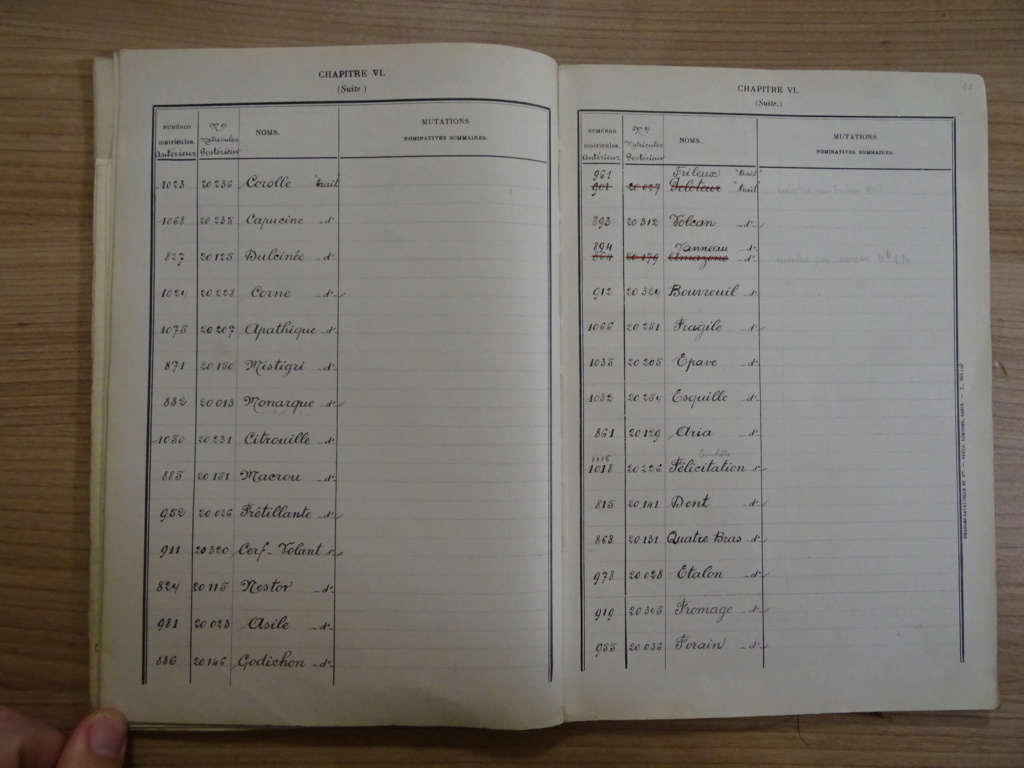 CHAPITRE VI.
(Suite)
NUMÉROS matricules. Antérieur
Nos Matricules Postérieur
NOMS.
MUTATIONS NOMINATIVES SOMMAIRES.
1023 20236 Corolle "trait"
1068 20235 Capucine -d°-
827 20125 Dulcinée -d°-
20228 Corne -d°-
1075 20207 Apathique -d°-
871 20150 Mistigri -d°-
882 20013 Monarque -d°-
1050 20231 Citrouille -d°-
885 20151 Macrou -d°-
952 20026 Frétillante -d°-
911 20320 Cerf-Volant -d°-
824 20115 Nestor -d°-
981 20023 Asile -d°-
886 20146 Godichon -d°-
CHAPITRE VI.
(Suite.)
NUMÉROS matricules. Antérieur
Nos Matricules Postérieur
NOMS.
MUTATIONS NOMINATIVES SOMMAIRES.
961 Frileux "trait"
901 20027 "trait"
893 20312 Volcan -d°-
894 Vanneau -d°-
20179 Amazone -d°-
912 20324 Bouvreuil -d°-
1066 20251 Fragile -d°-
1035 20205 Epave -d°-
1032 20254 Esquille -d°-
861 20129 Aria -d°-
1018 20226 Félicitation -d°-
815 20141 Dent -d°-
868 20131 Quatre Bras -d°-
978 20028 Etalon -d°-
919 20305 Fromage -d°-
955 20036 Forain -d°-